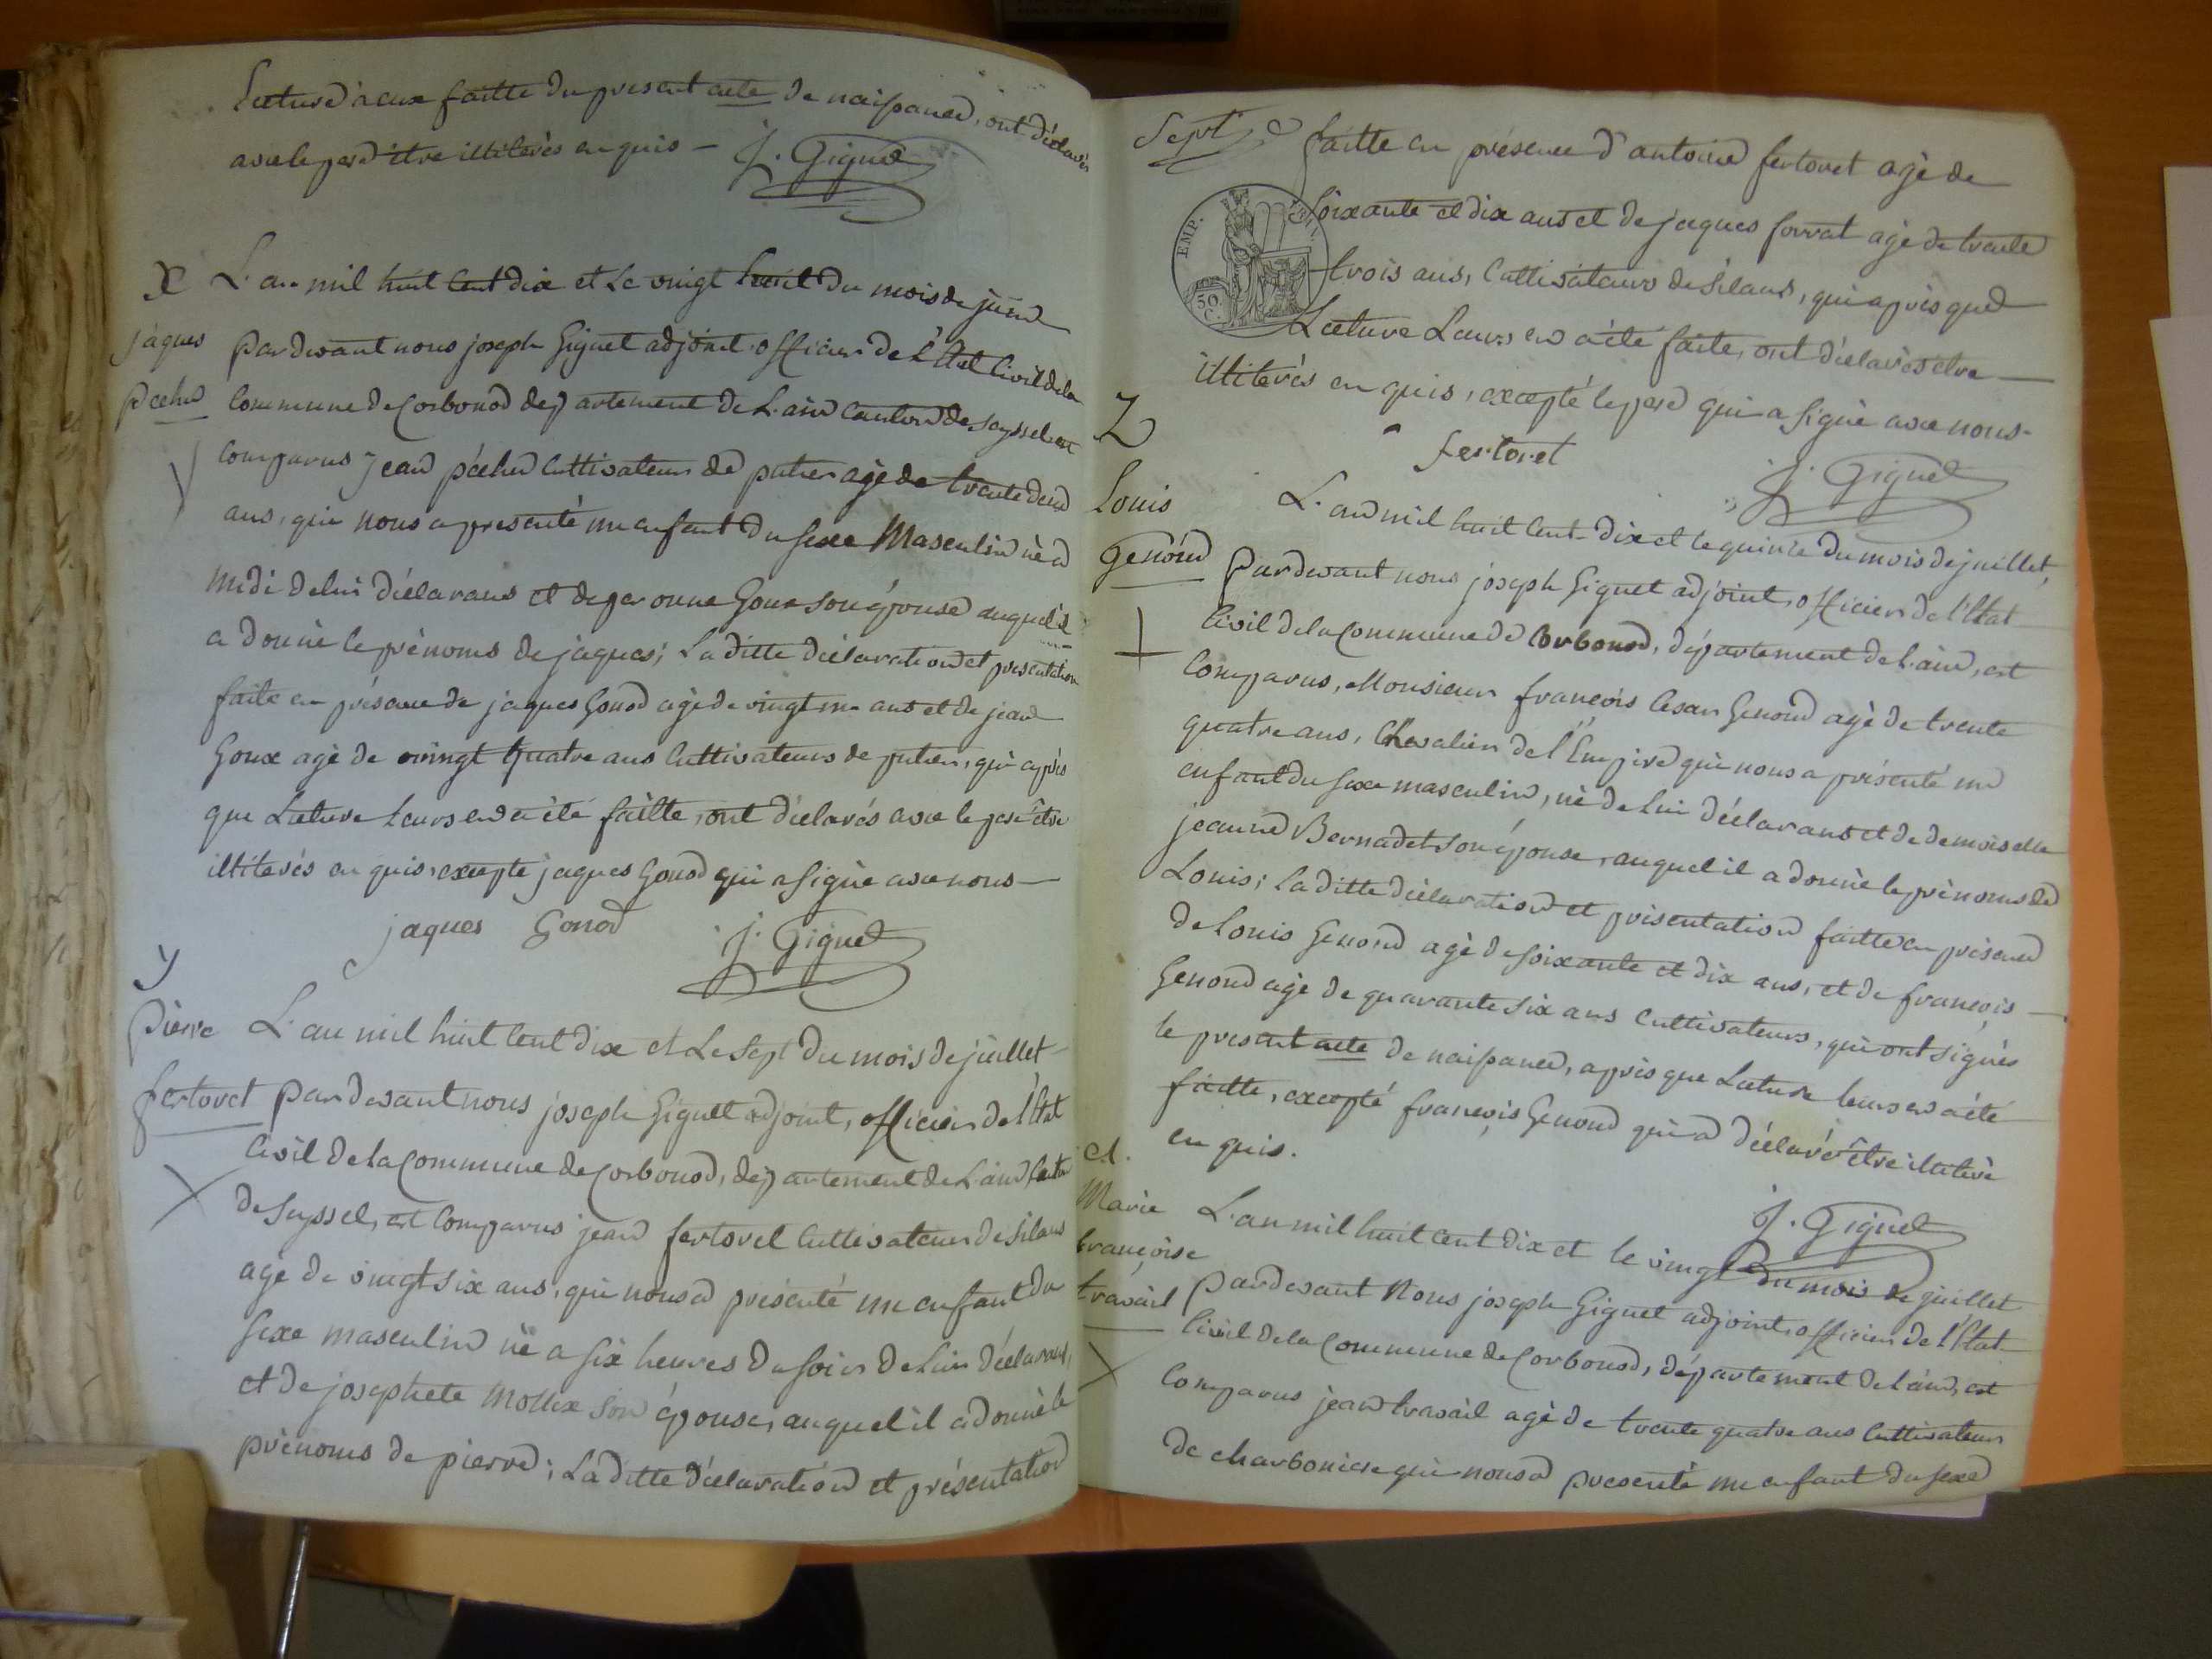 Lecture à eux faitte du present acte de naissance, ont déclarés
avec le pere être illiterés enquis — J. Giguet
X L'an mil huit cent dix et le vingt huit du mois de juin
jaques
pardevant nous joseph Giguet adjoint officier de l'Etat Civil de la
commune de Corbonod departement de L'ain canton de seyssel est
comparus jean pechu cultivateur de puthier agé de trente deux
ans, qui nous a presenté un enfant du sexe Masculin né a
midi de lui déclarans et de peronne Goux son épouse auquel il
a donné le prénoms de jaques; La ditte déclaration et presentation
faite en présence de jaques Gonod agé de vingt un ans et de jean
Goux agé de vingt quatre ans Cultivateurs de puthier, qui après
que Lecture leurs en a été faitte, ont déclarés avec le pere être
illiterés enquis, excepté jaques Gonod qui a signé avec nous —
jaques Gonod J. Giguet
y
pierre L'an mil huit cent dix et Le Sept du mois de juillet
fertoret pardevant nous joseph Giguet adjoint, officier de l'Etat
Civil de la Commune de Corbonod, departement de L'ain, canton
de Seyssel, est Comparus jean fertoret Cultivateur de Silans
agé de vingt six ans, qui nous a présenté un enfant du
sexe masculin né a six heures du soir de lui déclarans,
et de josephete Mollex son épouse, auquel il a donné le
prénoms de pierre; La ditte déclaration et présentation
Sept e faitte en présence d'antoine fertoret agé de
EMP.
50. C.
Soixante et dix ans et de jaques forrat agé de trente
trois ans, Cultivateurs de Silans, qui après que
Lecture Leurs en a été faite, ont déclarés etre —
illiterés enquis, excepté le pere qui a signé avec nous.
fertoret J. Giguet
Z
Louis L'an mil huit Cent dix et le quinze du mois de juillet,
Genoud pardevant nous joseph Giguet adjoint, officier de l'Etat
Civil de la Commune de Corbonod, département de L'ain, est
Comparus, Monsieur françois Cesar Genoud agé de trente
quatre ans, Chevalier de l'Empire qui nous a présenté un
enfant du sexe masculin, né de lui déclarans et de demoiselle
jeanne Bernadet son épouse, auquel il a donné le prénoms de
Louis; la ditte déclaration et présentation faitte en présence
de Louis Genoud agé de soixante et dix ans, et de françois —
Genoud agé de quarante six ans Cultivateurs, qui ont signés
le present acte de naissance, après que Lecture leurs en a été
faitte, excepté françois Genoud qui a déclaré être illiteré
enquis.
J. Giguet
Marie L'an mil huit cent dix et le vingt du mois de juillet
françoise
travail pardevant Nous joseph Giguet adjoint, officier de l'Etat
Civil de la Commune de Corbonod, département de L'ain, est
Comparus jean travail agé de trente quatre ans Cultivateur
de charboniere qui nous a presenté un enfant du sexe